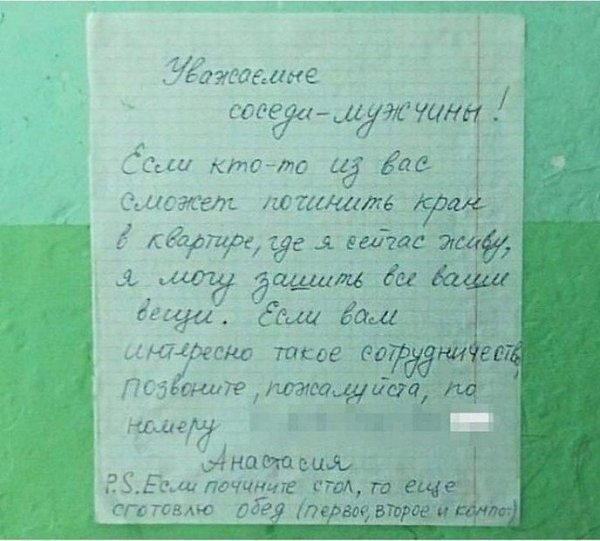 Уважаемые
соседи-мужчины!
Если кто-то из вас
сможет починить кран
в квартире, где я сейчас живу,
я могу зашить все ваши
вещи. Если вам
интересно такое сотрудничеств
позвоните, пожалуйста, по
номеру
Анастасия
P.S. Если почините стол, то еще
сготовлю обед (первое, второе и компот)